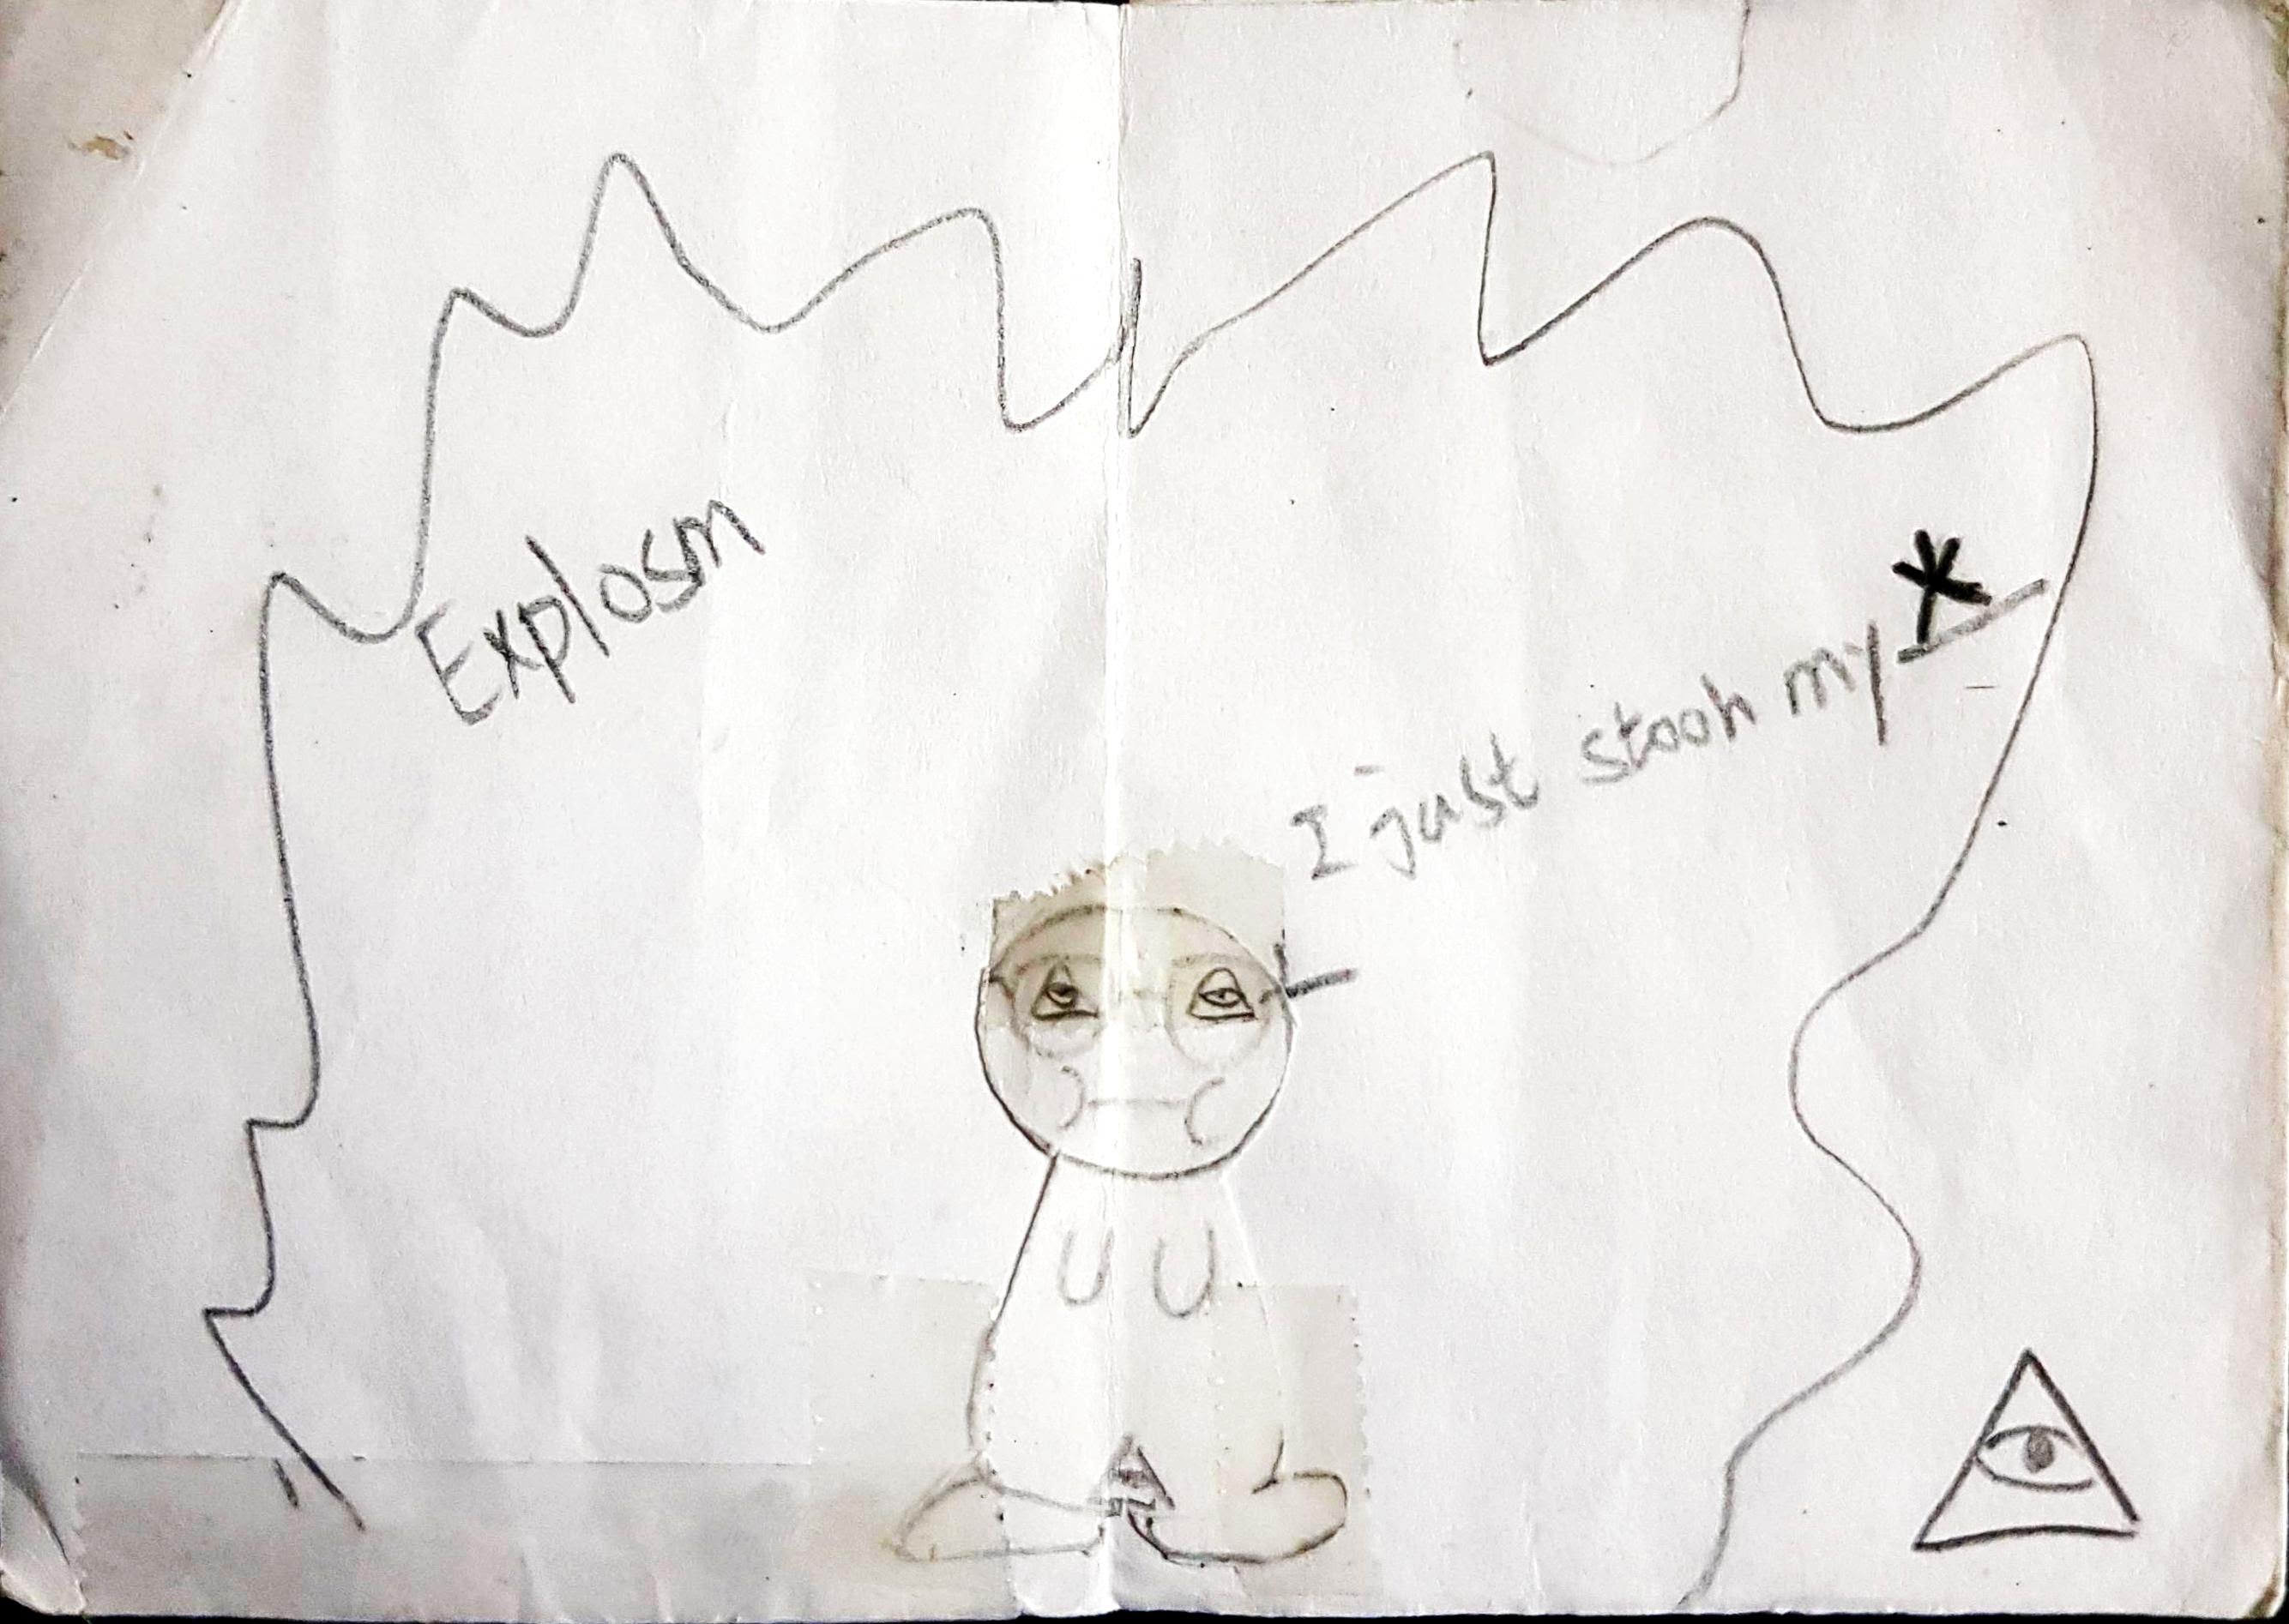 Explosm
I just stooh my